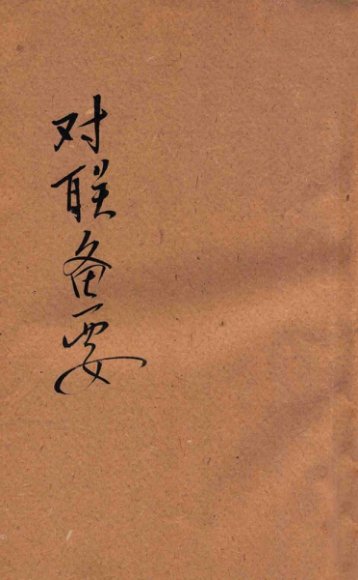 对联备要